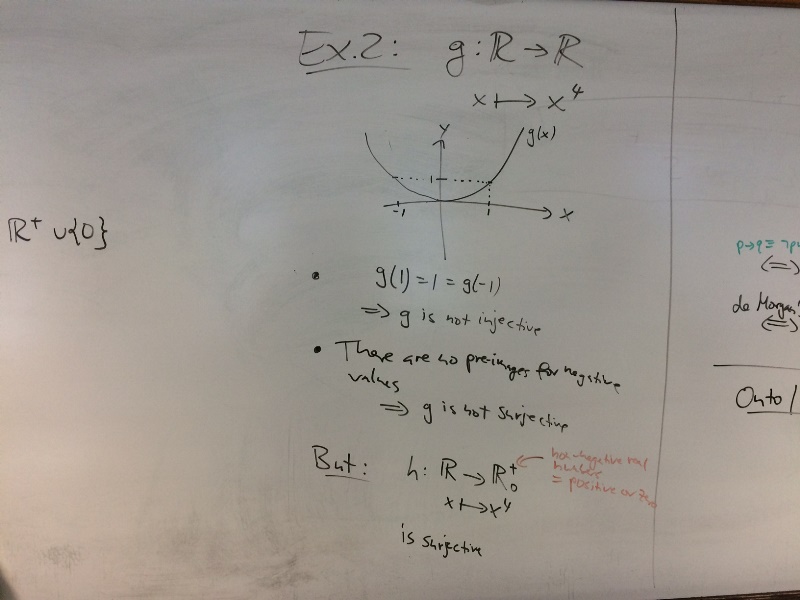 Ex.2: g: ℝ → ℝ
x ↦ x⁴
y
g(x)
1
-1
1
x
ℝ⁺ ∪{0}
• g(1) = 1 = g(-1)
⇒ g is not injective
• There are no pre-images for negative
values
⇒ g is not surjective
But: h: ℝ → ℝ₀⁺
x ↦ x⁴
is surjective
non-negative real
numbers
= positive or zero
p→q ≡ ¬p∨
(⇔)
de Morgan's
(⇔)
Onto /